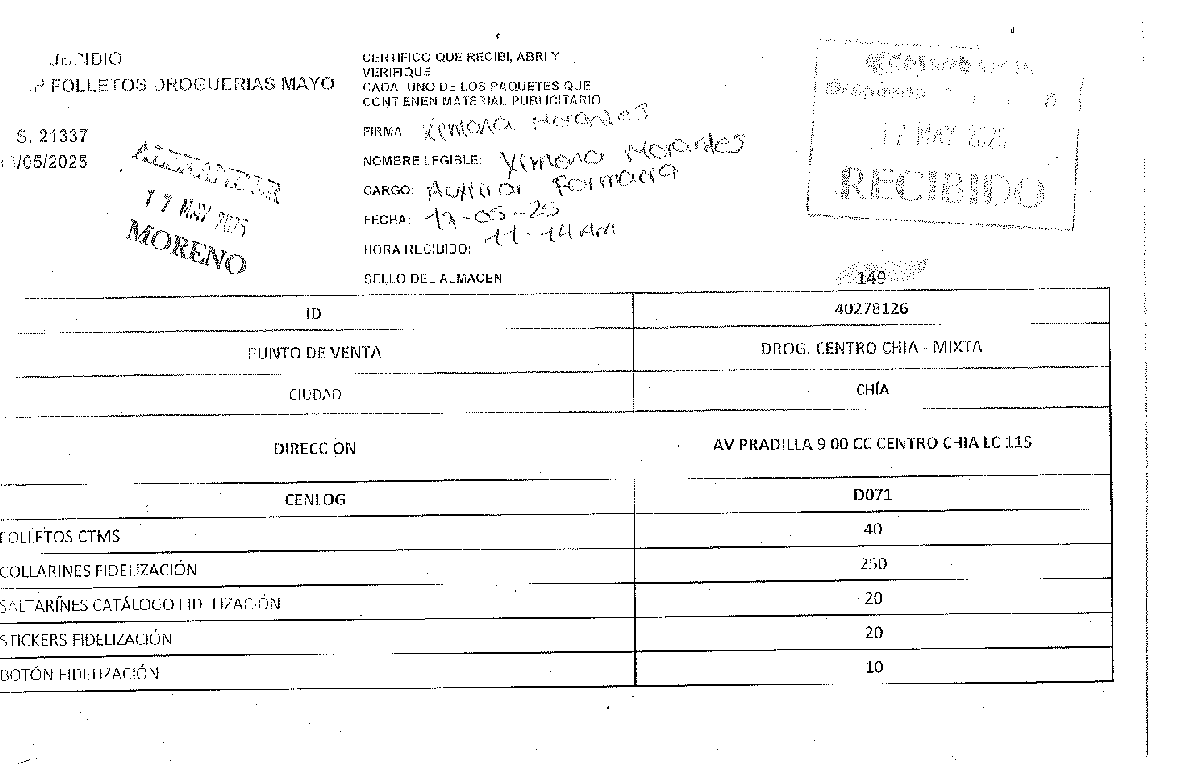 FOLLETOS DROGUERIAS MAYO
S. 21337
/05/2025
ALEXANDER
17 MAY 2025
MORENO
CERTIFICO QUE RECIBI, ABRI Y
VERIFIQUE
CADA UNO DE LOS PAQUETES QUE
CONTENEN MATERIAL PUBLICITARIO
FIRMA: Ximena Morantes
NOMBRE LEGIBLE: Ximena Morantes
CARGO: Auxiliar Farmacia
FECHA: 17-05-25
HORA RECIBIDO: 11-14 AM
SELLO DEL ALMACEN
17 MAY 2025
RECIBIDO
149
ID 40278126
PUNTO DE VENTA DROG. CENTRO CHIA - MIXTA
CIUDAD CHÍA
DIRECCION AV PRADILLA 9 00 CC CENTRO CHIA LC 115
CENLOG D071
FOLLETOS CTMS 40
COLLARINES FIDELIZACIÓN 250
SALTARÍNES CATÁLOGO FIDELIZACIÓN 20
STICKERS FIDELIZACIÓN 20
BOTÓN FIDELIZACIÓN 10